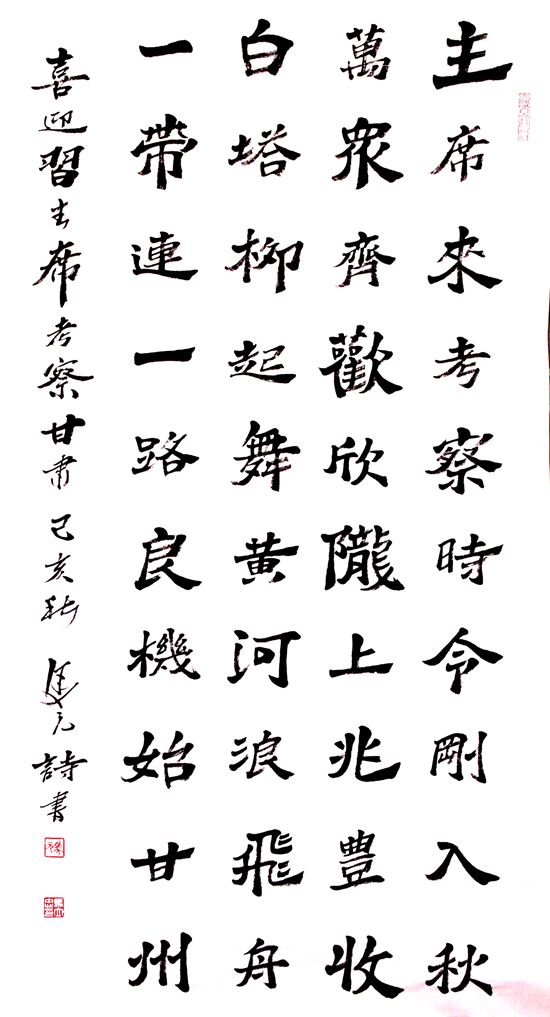 主席來考察時令剛入秋
萬眾齊歡欣隴上兆豐收
白塔柳起舞黃河浪飛舟
一帶連一路良機始甘州
喜迎習主席考察甘肅己亥秋集元詩書